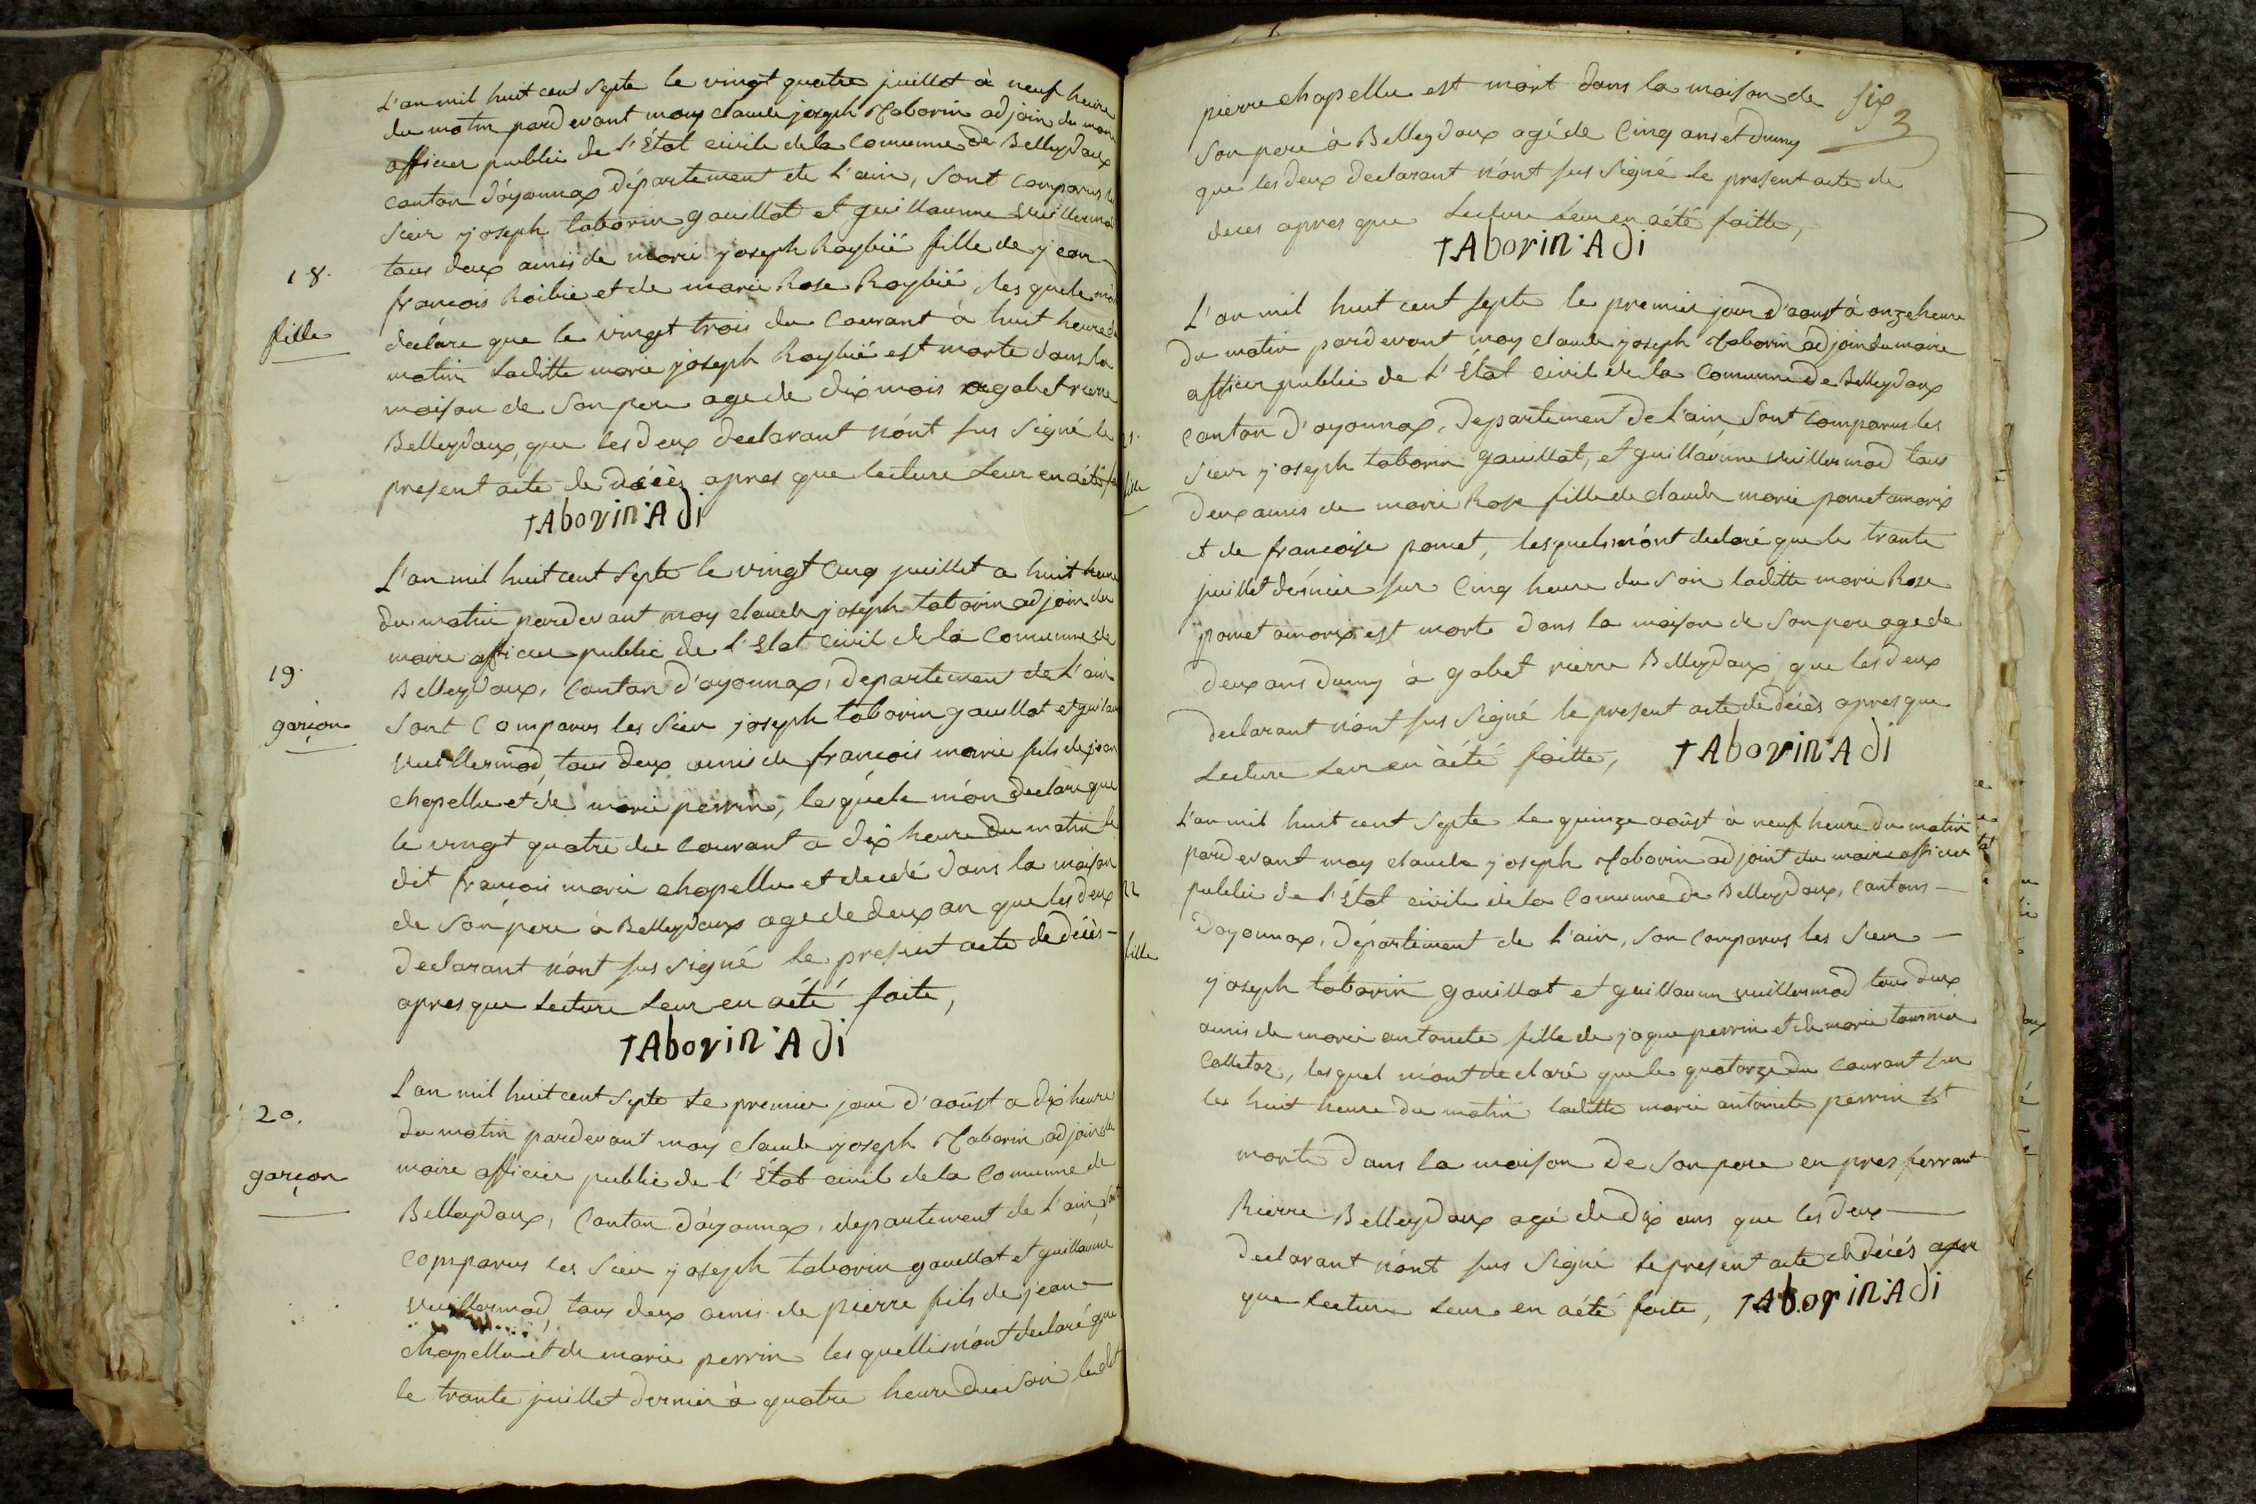 L'an mil huit cent Septe le vingt quatre juillet à neuf heure
du matin pardevant moy claude joseph Taborin adjoin du mair
officier public de l'État civile de la Comunne de Belleydoux
canton d'oyonnax département de l'ain, Sont comparus les
Sieur joseph taborin gouillat et guillaume Vuillermod
tous deux amis de marie joseph Roybié fille de jean
18.
françois Roibie et de marie Rose Roybié, les quele m'on
fille
déclare que le vinget trois du Courant à huit heure du
matin laditte marie joseph Roybié est morte dans la
maison de Son pere age de dix mois a gobet rierre
Belleydoux, que les deux declarant n'ont sus Signé le
present acte de décès apres que lecture leur en aété fa
TAborin Adi
L'an mil huit cent Septe le vingt Cinq juillet a huit heure
du matin pardevant moy claude joseph taborin adjoin du
maire officier public de l'Etat civil de la Comunne de
19.
Belleydoux, Canton d'oyonnax, departement de l'ain
garçon
Sont Comparus les Sieur joseph taborin gouillat et guilau
Vuillermod, tous deux amis de françois marie fils de jean
chapellu et de marie perrin, lesquele m'on declare que
le vingt quatre du Courant a dix heure du matin le
dit françois marie chapellu et decedé dans la maison
de Son pere à Belleydoux age de deux an que les deux
declarant n'ont sus signé le present acte de décès
apres que lecture leur en aété faite,
TAborin Adi
20.
L'an mil huit cent Septe le premier jour d'août a dix heure
du matin pardevant moy claude joseph Taborin adjoin du
garçon
maire officier public de l'État civil de la Comunne de
Belleydoux, Canton d'oyonnax, departement de l'ain, Sont
comparus les Sieur joseph taborin gouillat et guillaume
Vuillermod, tous deux amis de pierre fils de jean
chapellu et de marie perrin les quelle m'ont declaré que
le trante juillet dernier à quatre heure du Soir ledit
pierre chapellu est mort dans la maison de
Six
3
Son pere à Belleydoux agé de Cinq ans et dumy
que les deux declarant n'ont sus Signé le present acte de
deces apres que Lecture leur en aété faitte,
TAborin Adi
L'an mil huit cent Septe le premier jour d'aoust à onze heure
21.
du matin pardevant moy claude joseph Taborin adjoin du maire
fille
officier public de l'État civil de la Comunne de Belleydoux
Canton d'oyonnax, Departement de l'ain, Sont Comparus les
Sieur joseph taborin gouillat, et guillaume Vuillermod tous
deux amis de marie Rose fille de claude marie pomet amorix
et de françoise pomet, lesquels m'ont declaré que le trante
juillet dernier sur Cinq heure du Soir laditte marie Rose
pomet amorix est morte dans la maison de Son pere age de
deux ans dumy à gobet rierre Belleydoux, que les deux
declarant n'ont sus Signé le present acte de décès apres que
Lecture leur en àété faitte, TAborin Adi
L'an mil huit cent Septe le quinze août à neuf heure du matin
22
pardevant moy claude joseph Taborin adjoint du maire officier
fille
public de l'État civile de la Comunne de Belleydoux, Cantons
d'oyonnax, département de l'ain, Son comparus les Sieur
joseph taborin gouillat et guillaume vuillermod tous deux
amis de marie antonete fille de jaque perrin et de marie tournié
Colletaz, lesquel m'ont declaré que le quatorze du Courant sur
les huit heure du matin laditte marie antonete perrin est
morte dans la maison de Son pere en prez ferrant
Rierre Belleydoux agé de dix ans que les deux
declarant n'ont sus Signé le present acte de décés apre
que lecture leur en aété faite, TAborin Adi